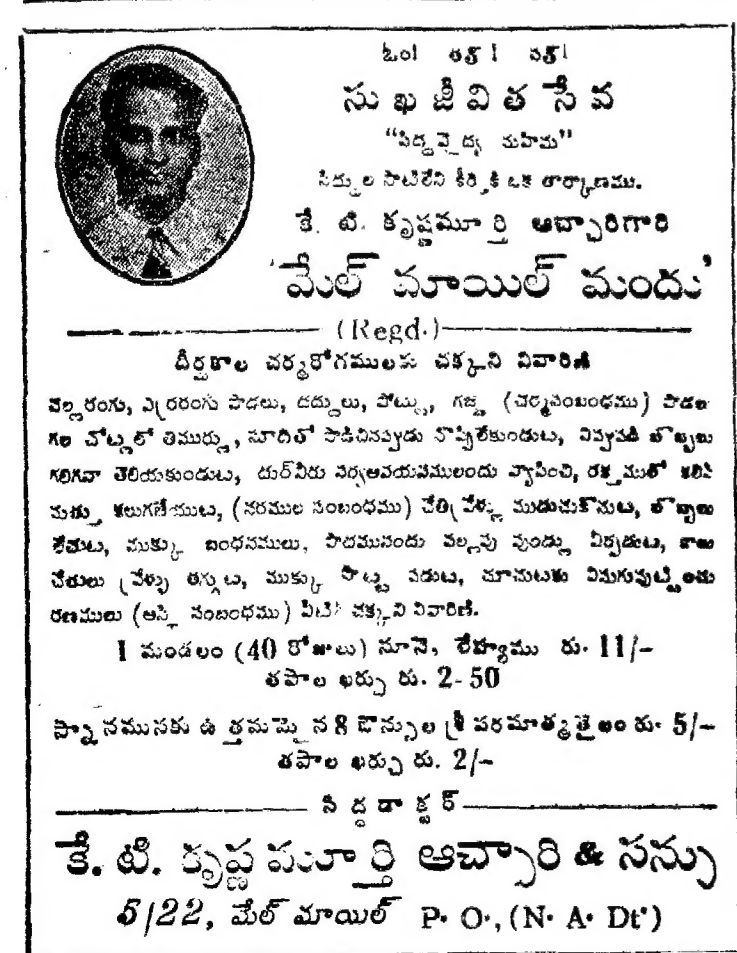 ఓం! తత్ ! సత్!
సు ఖ జీ వి త సే వ
"సిద్ధవైద్య మహిమ"
సిద్ధుల సాటిలేని కీర్తికి ఒక తార్కాణము.
కే. టి. కృష్ణమూర్తి ఆచ్చారిగారి
'మేల్ మాయిల్ మందు'
(Regd.)
దీర్ఘకాల చర్మరోగములకు చక్కని నివారిణి
తెల్లరంగు, ఎర్రరంగు పొడలు, దద్దులు, పోట్లు, గజ్జి (చర్మసంబంధము) పొడలు
గల చోట్లలో తిముర్లు, సూదితో పొడిచినప్పుడు నొప్పిలేకుండుట, నిప్పుపడి బొబ్బలు
కలిగినా తెలియకుండుట, దుర్నీరు సర్వఅవయవములందు వ్యాపించి, రక్తముతో కలిసి
మత్తు కలుగజేయుట, (నరముల సంబంధము) చేతివ్రేళ్ళు ముడుచుకొనుట, బొబ్బలు
లేచుట, ముక్కు బంధనములు, పాదమునందు పల్లపు పుండ్లు ఏర్పడుట, కాలు
చేతులు వ్రేళ్ళు తగ్గుట, ముక్కు చొట్ట పడుట, చూచుటకు విసుగుపుట్టించు
రణములు (ఆస్తి సంబంధము) వీటికి చక్కని నివారిణి.
1 మండలం (40 రోజులు) నూనె, లేహ్యము రు. 11/-
తపాల ఖర్చు రు. 2-50
స్నానమునకు ఉత్తమమైన 8 ఔన్సుల శ్రీ పరమాత్మతైలం రు. 5/-
తపాల ఖర్చు రు. 2/-
సిద్ధ డాక్టర్
కే. టి. కృష్ణమూర్తి ఆచ్చారి & సన్సు
5/22, మేల్ మాయిల్ P. O., (N. A. Dt')